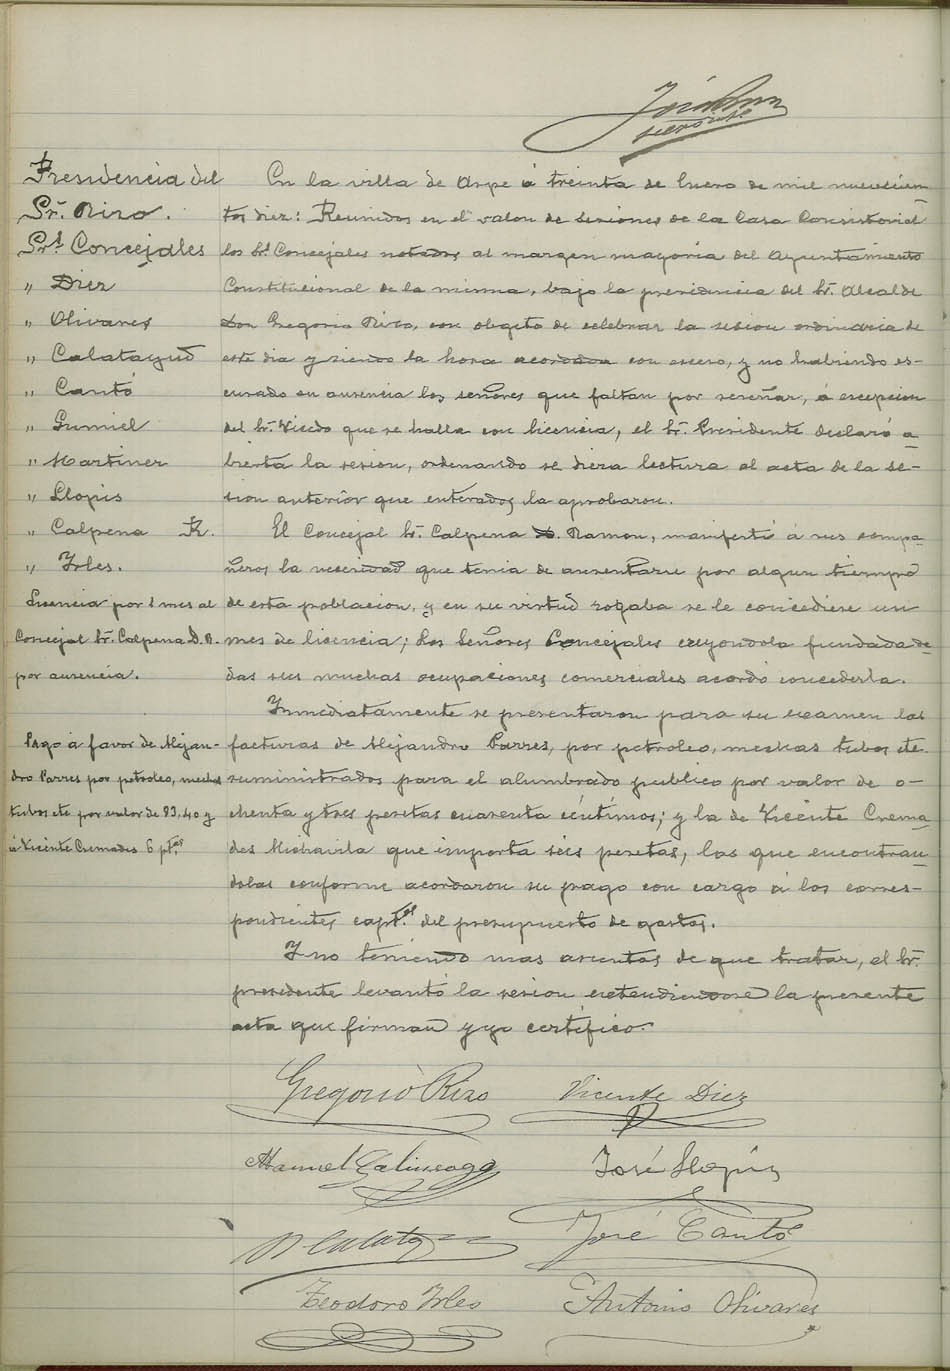 Presidencia del
Sr. Rizo.
Srs Concejales
" Diez
" Olivares
" Calatayud
" Cantó
" Gumiel
" Martinez
" Llopis
" Calpena R.
" Irles.
Licencia por 1 mes al
Concejal Sr. Calpena D. R.
por ausencia.
Pago á favor de Alejan-
dro Parres por petroleo, mechas
tubos etc por valor de 83,40 y
á Vicente Cremades 6 ptas
En la villa de Aspe á treinta de Enero de mil novecien-
tos diez: Reunidos en el salon de sesiones de la Casa Consistorial
los Srs Concejales notados al margen mayoria del Ayuntamiento
Constitucional de la misma, bajo la presidencia del Sr. Alcalde
Don Gregorio Rizo, con objeto de celebrar la sesion ordinaria de
este dia y siendo la hora acordada con exceso, y no habiendo es-
cusado su ausencia los señores que faltan por reseñar, á escepcion
del Sr. Vicedo que se halla con licencia, el Sr. Presidente declaró a-
bierta la sesion, ordenando se diera lectura al acta de la se-
sion anterior que enterados la aprobaron.
El Concejal Sr. Calpena D. Ramon, manifestó á sus compa-
ñeros la necesidad que tenia de ausentarse por algun tiempo
de esta poblacion, y en su virtud rogaba se le concediese un
mes de licencia; Los Señores Concejales creyendola fundada da-
das sus muchas ocupaciones comerciales acordó concederla.
Inmediatamente se presentaron para su examen las
facturas de Alejandro Parres, por petroleo, mechas tubos etc.
suministrados para el alumbrado publico por valor de o-
chenta y tres pesetas cuarenta céntimos; y la de Vicente Crema-
des Michavila que importa seis pesetas, las que encontran-
dolas conforme acordaron su pago con cargo á los corres-
pondientes captos del presupuesto de gastos.
Y no teniendo mas asuntos de que tratar, el Sr.
presidente levantó la sesion extendiendose la presente
acta que firman y yo certifico.
Gregorio Rizo Vicente Diez
Manuel José Llopis
José Cantó
Teodoro Irles Antonio Olivares